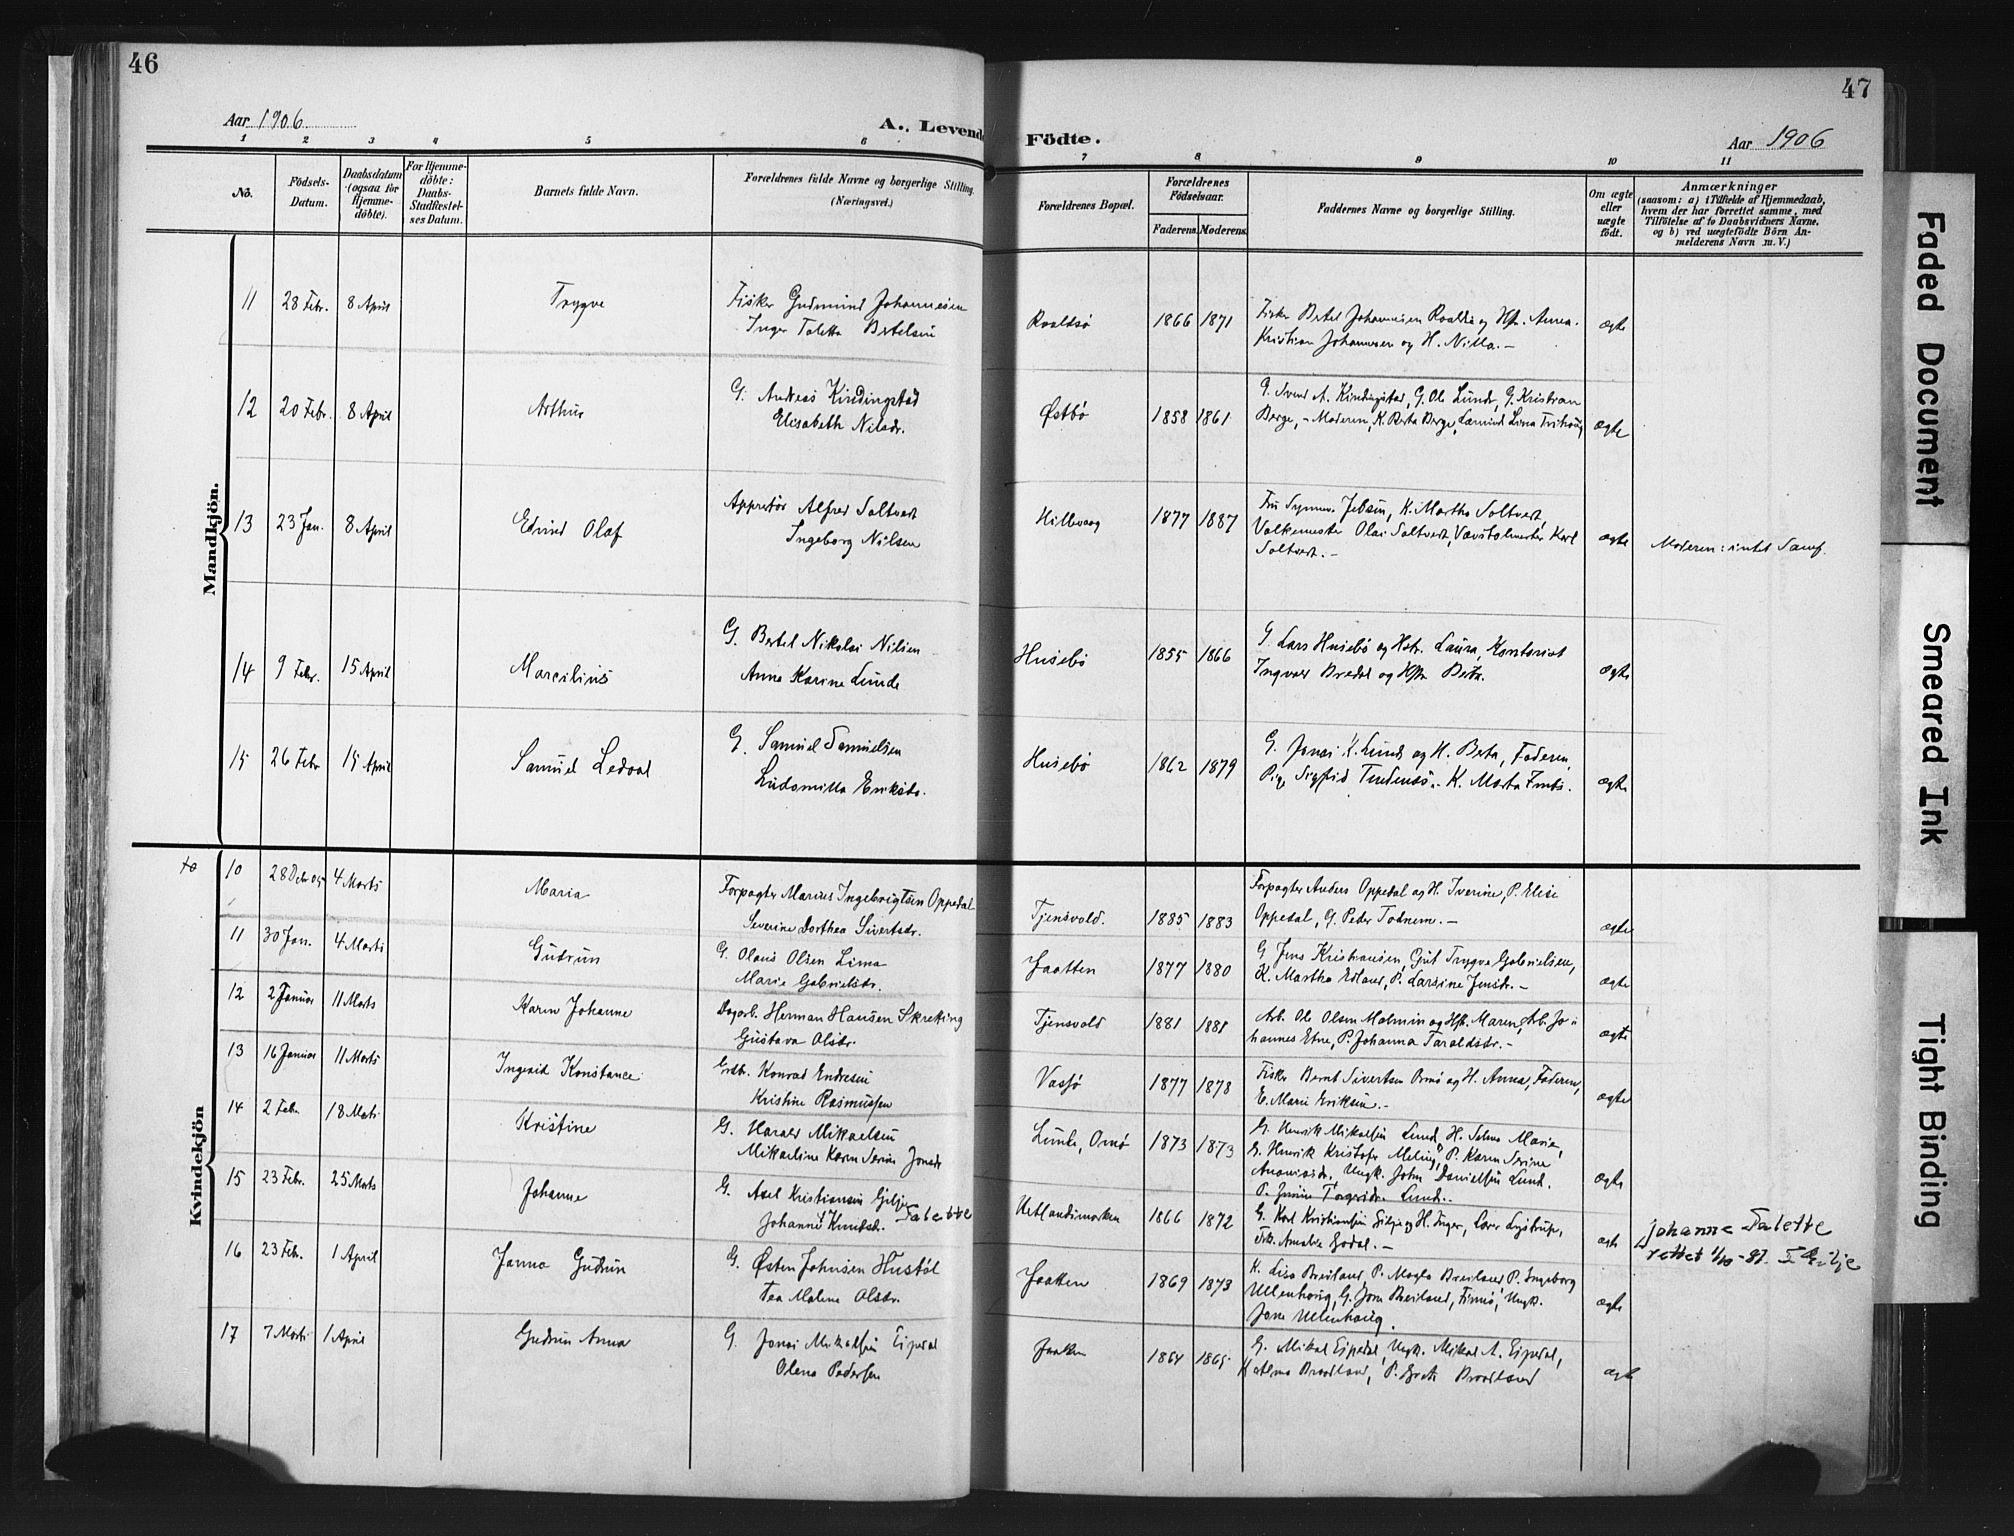 46
47
Aar 1906
A. Levende
Födte.
Aar 1906
1 2 3 4 5 6 7 8 9 10 11
No.
Födsels-
Datum.
Daabsdatum
(ogsaa for
Hjemme-
döbte).
For Hjemme-
döbte:
Daabs-
Stadfæstel-
ses Datum.
Barnets fulde Navn.
Forældrenes fulde Navne og borgerlige Stilling.
(Næringsvei.)
Forældrenes Bopæl.
Forældrenes
Födselsaar.
Faderens. Moderens.
Faddernes Navne og borgerlige Stilling.
Om ægte
eller
uægte
födt.
Anmærkninger
(saasom: a) i Tilfælde af Hjemmedaab,
hvem der har forrettet samme, med
Tilföielse af to Daabsvidners Navne,
og b) ved uægtefödte Börn An-
melderens Navn m. V.)
Mandkjön.
11 28 Febr. 8 April Trygve
Fisker Gudmund Johannesen
Inger Taletta Bertelsen
Roaldsø 1866 1871
Fisker Bertel Johannesen Roaldsø og Hst. Anna.
Kristian Johannesen og H. Nilla.-
ægte
12 20 Febr. 8 April Arthur
G. Andreas Kindingstad
Elisabeth Nilsdr.
Østbø 1858 1861
G. Svend A. Kindingstad, G. Ole Lunde, G. Kristian
Berge, - Moderen, K. Berta Berge, Lina
ægte
13 23 Jan. 8 April Edvind Olaf
Appretør Alfred Soltvedt
Ingeborg Nilsen
Hillevaag 1877 1887
Jebsen, K. Martha Soltvedt,
Valkemester Olai Soltvedt, Karl
Soltvedt.-
ægte Moderen: intet Samf.
14 9 Febr. 15 April Marcilius
G. Bertel Nikolai Nilsen
Anna Karine Lunde
Husebø 1855 1866
G. Lars Husebø og Hst. Laura, Kontorist
Ingvald Bredal og Hst. Berta.
ægte
15 26 Febr 15 April Samuel Ledaal
G. Samuel Samuelsen
Ludomilla Eriksdr.
Husebø 1862 1879
G. Jonas K. Lunde og H. Berta, Faderen,
Pige Sigfrid K. Marta
ægte
Kvindekjön
10 28 Debr 05 4 Marts Maria
Forpagter Marius Ingebrigtsen Oppedal
Severine Dorthea Sivertsdr.
Tjensvold. 1885 1883
Forpagter Anders Oppedal og H. Iverine, P. Elise
Oppedal, G. Peder Todnem.-
ægte
11 30 Jan. 4 Marts Gudrun
G. Olaus Olsen Lima
Marie Gabrielsdr.
Jaatten 1877 1880
G. Jens Kristiansen, Gut Trygve Gabrielsen,
K. Martha Edland, P. Larsine Jensdr.-
ægte
12 2 Januar 11 Marts Karen Johanne
Dagarb. Herman Hansen Skreking
Gustava Olsdr.
Tjensvold 1881 1881
Arb. Ole Olsen Malmin og Hst. Maren, Arb. Jo-
hannes Etne, P. Johanna Taraldsdr.-
ægte
13 16 Januar 11 Marts Ingerid Konstance
Grdb. Konrad Endresen
Kristine Rasmussen
Vassø 1877 1878
Fisker Bernt Sivertsen Omø og H. Anna, Faderen,
E. Marie Eriksen.-
ægte
14 2 Febr. 18 Marts Kristine
G. Harald Mikaelsen
Mikaeline Karen Serine Jonasdr
Lunde, Omø 1873 1873
G. Henrik Mikalsen Lund, H. Selma Marie,
G. Henrik Kristofer Meling, P. Karen Serine
Ananiasdr. Ungk. John Danielsen Lund.
P. Torgersdr. Lund.-
ægte
15 23 Febr. 25 Marts Johanne
G. Axel Kristiansen Gilje
Johanne Knutsdr. Talette
Uetlandsmarken 1866 1872
G. Karl Kristiansen Gilje og H. Inger,
Frk. Amalie
ægte
Johanne Talette
rettet 1/10-87.
16 23 Febr. 1 April Janna Gudrun
G. Østen Johnsen Hustøl
Tea Malene Olsdr.
Jaatten 1869 1873
K. Lisa Breiland, P. Magla Breiland P. Ingeborg
Ullenhaug, G. Jon Breiland, Ungk.
Jone Ullenhaug.
ægte
17 7 Marts 1 April Gudrun Anna
G. Jonas Mikalsen Eigedal
Olena Pedersen
Jaatten 1864 1865
G. Mikal Eigedal, Ungk. Mikal A. Eigedal,
K. Alma Braadland, P. Braadland
ægte
Faded Document
Smeared Ink
Tight Binding